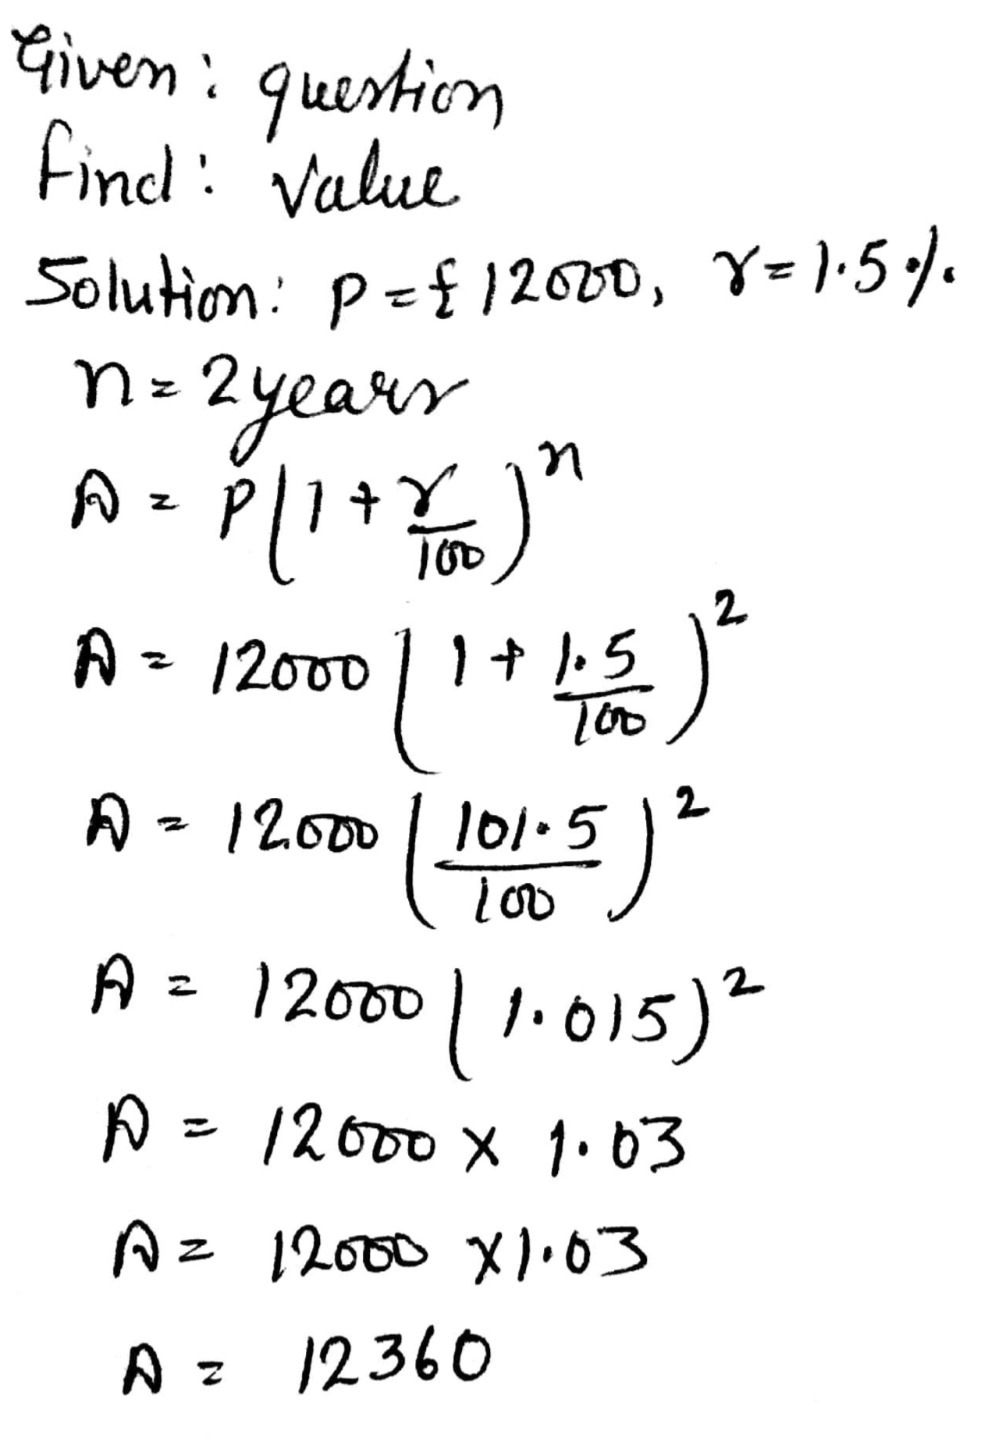 Given: question
find: Value
Solution: P = £ 12000, r = 1.5 %
n = 2 years
A = P(1 + r/100)^n
A = 12000 (1 + 1.5/100)^2
A = 12000 (101.5/100)^2
A = 12000 (1.015)^2
A = 12000 x 1.03
A = 12000 x 1.03
A = 12360